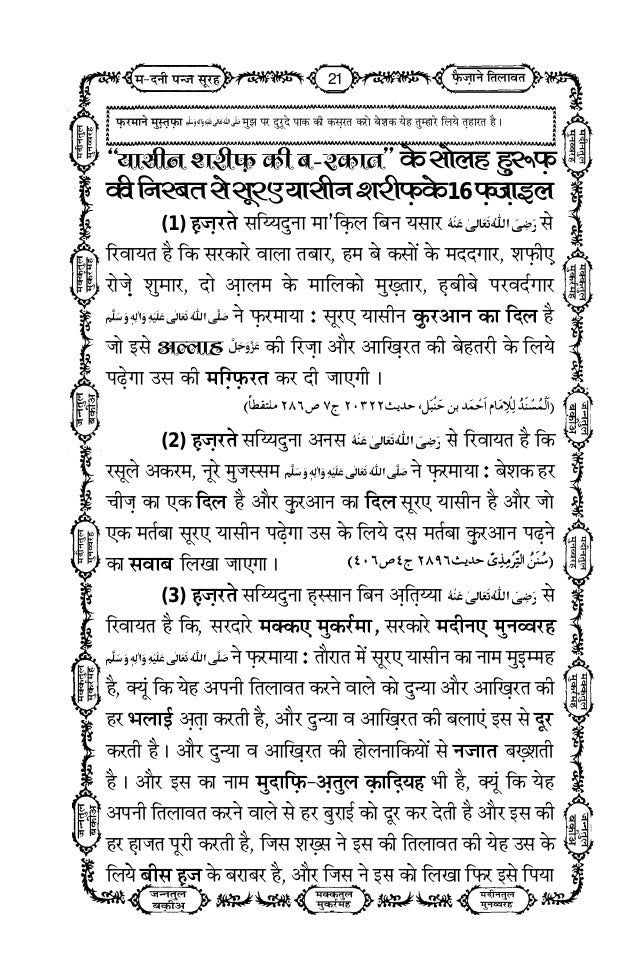 म-दनी पन्ज सूरह
21
फ़ैज़ाने तिलावत
फ़रमाने मुस्तफ़ा صلى الله تعالى عليه واله وسلم मुझ पर दुरूदे पाक की कसरत करो बेशक येह तुम्हारे लिये त़हारत है ।
“यासीन शरीफ़ की ब-रकात” के सोलह हुरूफ़
की निस्बत से सूरए यासीन शरीफ़ के 16 फ़ज़ाइल
(1) हज़रते सय्यिदुना मा'क़िल बिन यसार رَضِىَ اللهُ تَعَالٰى عَنْهُ से
रिवायत है कि सरकारे वाला तबार, हम बे कसों के मददगार, शफ़ीए
रोज़े शुमार, दो आ़लम के मालिको मुख़्तार, ह़बीबे परवर्दगार
صَلَّى اللهُ تَعَالٰى عَلَيْهِ وَاٰلِهٖ وَسَلَّم ने फ़रमाया : सूरए यासीन क़ुरआन का दिल है
जो इसे अल्लाह عَزَّوَجَلَّ की रिज़ा और आख़िरत की बेहतरी के लिये
पढ़ेगा उस की मग़्फ़िरत कर दी जाएगी ।
(اَلْمُسْنَدُ لِلْاِمَام اَحْمَد بن حَنْبَل، حدیث ۲۰۳۲۲ ج۷ ص۲۸۶ ملتقطاً)
(2) हज़रते सय्यिदुना अनस رَضِىَ اللهُ تَعَالٰى عَنْهُ से रिवायत है कि
रसूले अकरम, नूरे मुजस्सम صَلَّى اللهُ تَعَالٰى عَلَيْهِ وَاٰلِهٖ وَسَلَّم ने फ़रमाया : बेशक हर
चीज़ का एक दिल है और क़ुरआन का दिल सूरए यासीन है और जो
एक मर्तबा सूरए यासीन पढ़ेगा उस के लिये दस मर्तबा क़ुरआन पढ़ने
का सवाब लिखा जाएगा । (سُنَنُ التِّرْمِذِىّ حدیث ۲۸۹۶ ج٤ ص٤۰٦)
(3) हज़रते सय्यिदुना हस्सान बिन अ़त़िय्या رَضِىَ اللهُ تَعَالٰى عَنْهُ से
रिवायत है कि, सरदारे मक्कए मुकर्रमा, सरकारे मदीनए मुनव्वरह
صَلَّى اللهُ تَعَالٰى عَلَيْهِ وَاٰلِهٖ وَسَلَّم ने फ़रमाया : तौरात में सूरए यासीन का नाम मुइ़म्मह
है, क्यूं कि येह अपनी तिलावत करने वाले को दुन्या और आख़िरत की
हर भलाई अ़त़ा करती है, और दुन्या व आख़िरत की बलाएं इस से दूर
करती है । और दुन्या व आख़िरत की होलनाकियों से नजात बख़्शती
है । और इस का नाम मुदाफ़ि-अ़तुल क़ादियह भी है, क्यूं कि येह
अपनी तिलावत करने वाले से हर बुराई को दूर कर देती है और इस की
हर ह़ाजत पूरी करती है, जिस शख़्स ने इस की तिलावत की येह उस के
लिये बीस ह़ज के बराबर है, और जिस ने इस को लिखा फिर इसे पिया
मदीनतुल
मुनव्वरह
मक्कतुल
मुकर्रमह
जन्नतुल
बक़ीअ़
मदीनतुल
मुनव्वरह
मक्कतुल
मुकर्रमह
जन्नतुल
बक़ीअ़
मदीनतुल
मुनव्वरह
मक्कतुल
मुकर्रमह
जन्नतुल
बक़ीअ़
मदीनतुल
मुनव्वरह
मक्कतुल
मुकर्रमह
जन्नतुल
बक़ीअ़
जन्नतुल
बक़ीअ़
मक्कतुल
मुकर्रमह
मदीनतुल
मुनव्वरह